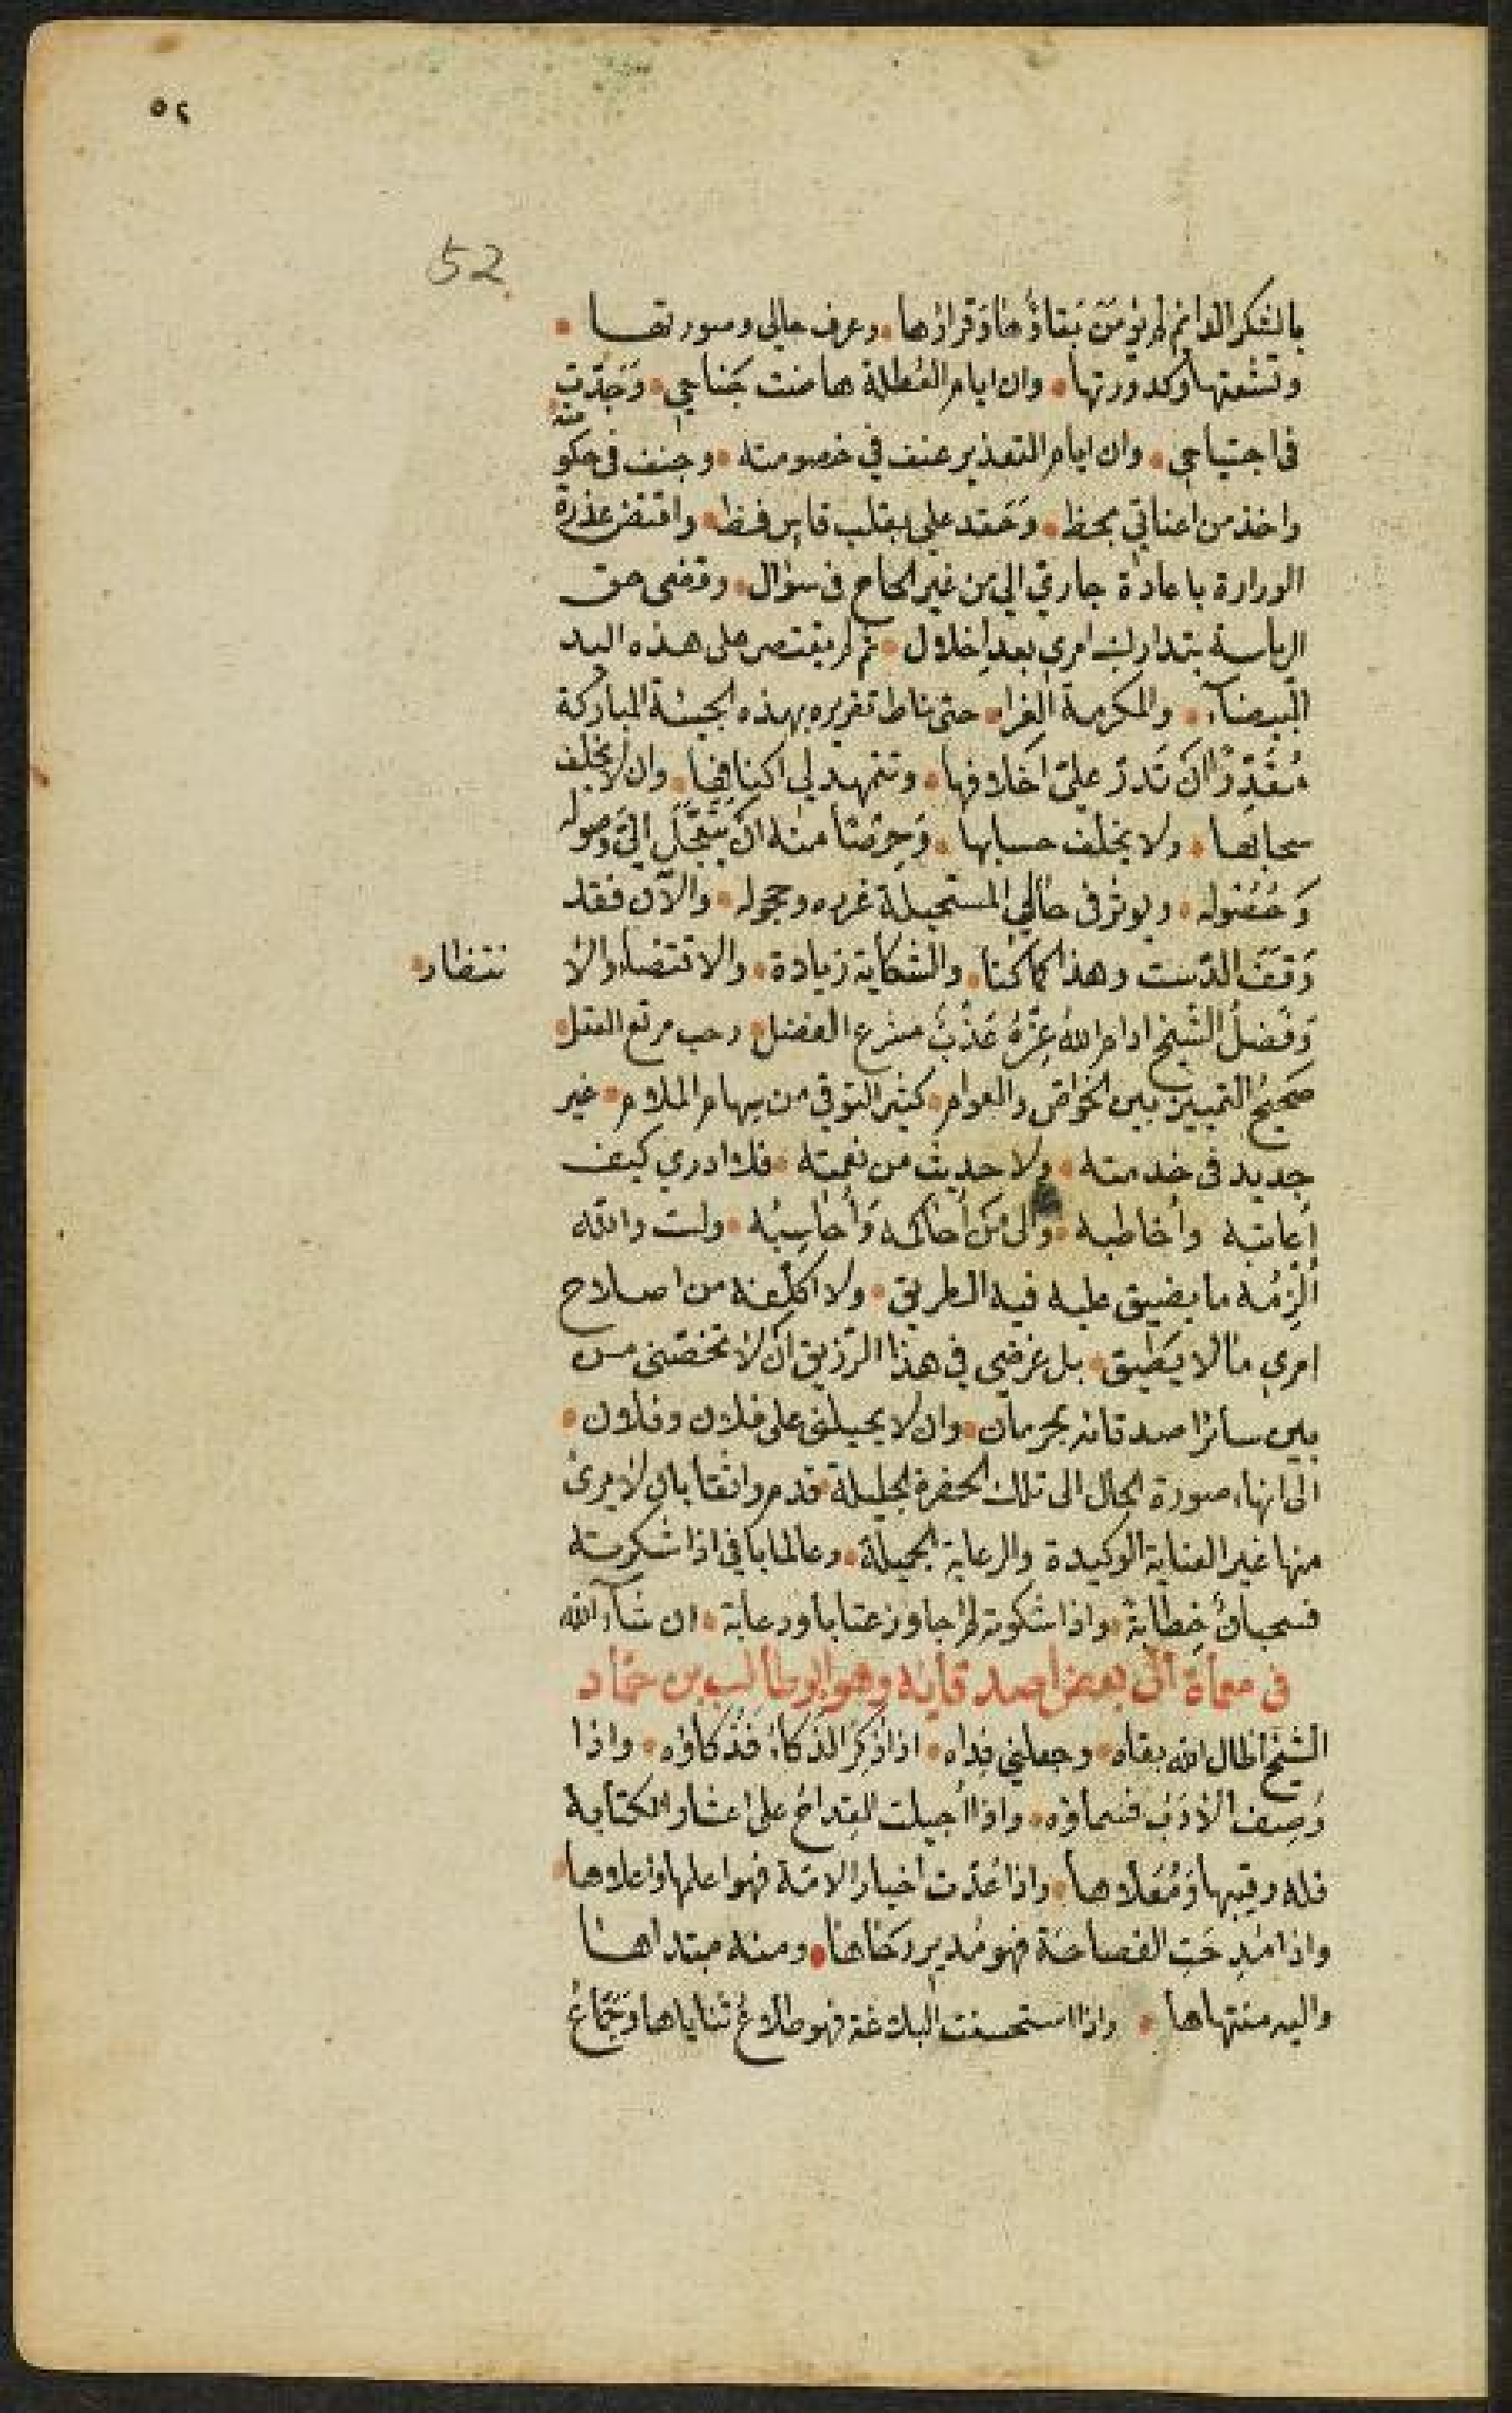 ٥٢
52
بالشكر الدائم لم يؤمن بقاؤها وقرارها • وعرف حالي وصورتها •
وتشعثها وكدورتها • وان ايام العطلة هاضت جناحي • وجدّت
في اجتياحي • وان ايام التعذير عنف في خصومته • وجنف في حكومته
واخذ من اعناتي بحظ • وحقد علي بقلب قاس فظ • وافتض عذرة
الوزارة باعادة جاري الي من غير الحاح في سؤال • وقضى حق
الرياسة بتدارك امري بعد اخلال • ثم لم يقتصر على هذه اليد
البيضاء • والمكرمة الغراء • حتى ناط تقريره بهذه الجيئة المباركة
مُقَدِّرًا ان تدر علي اخلافها • وتتمهد لي اكنافها • وان لا يخلف
سحابها • ولا يخلف حسابها • وحرصا منه ان يتعجل الي وصوله
وحصوله • ويوثر في حالي المستحيلة غرره وحجوله • والآن فقد
وقف الدست وهذا كما كنا • والشكاية زيادة • والاقتضاء والا نتظار •
وفضل الشيخ ادام الله عزه عذب مشرع الفضل • رحب مرتع العقل •
صحيح التمييز بين الخواص والعوام • كثير التوقي من سهام الملام • غير
جديد في خدمته • ولا حديث من نعمته • فلا ادري كيف
اعاتبه واخاطبه • والى من احاكمه واحاسبه • ولست والله
ألزمه ما يضيق عليه فيه الطريق • ولا اكلفه من اصلاح
امري ما لا يطيق • بل غرضي في هذا الرزيق ان لا تخصني من
بين سائر اصدقائه بحرمان • وان لا يحيلني على فلان وفلان •
الى انهاء صورة الحال الى تلك الحضرة الجليلة قدم واثقا بان لا يرى
منها غير العناية الوكيدة والرعاية الجميلة • وعالما باني اذا شكرته
فسحبان خطابة • واذا شكوته لم اجاوز عتابا ودعابة • ان شاء الله
في معناه الى بعض اصدقائه وهو ابو طالب بن حماد
الشيخ اطال الله بقاه • وجعلني فداه • اذا ذكر الذكاء فذكاؤه • واذا
وصف الادب فسماؤه • واذا أجيلت القداح على اعشار الكتابة
فله رقيبها ومعلاها • واذا عدت اخيار الامة فهو اعلمها واعلاها •
واذا مدحت الفصاحة فهو مدير رحاها • ومنه مبتداها
واليه منتهاها • واذا استحسنت البلاغة فهو طلاع ثناياها وجماع